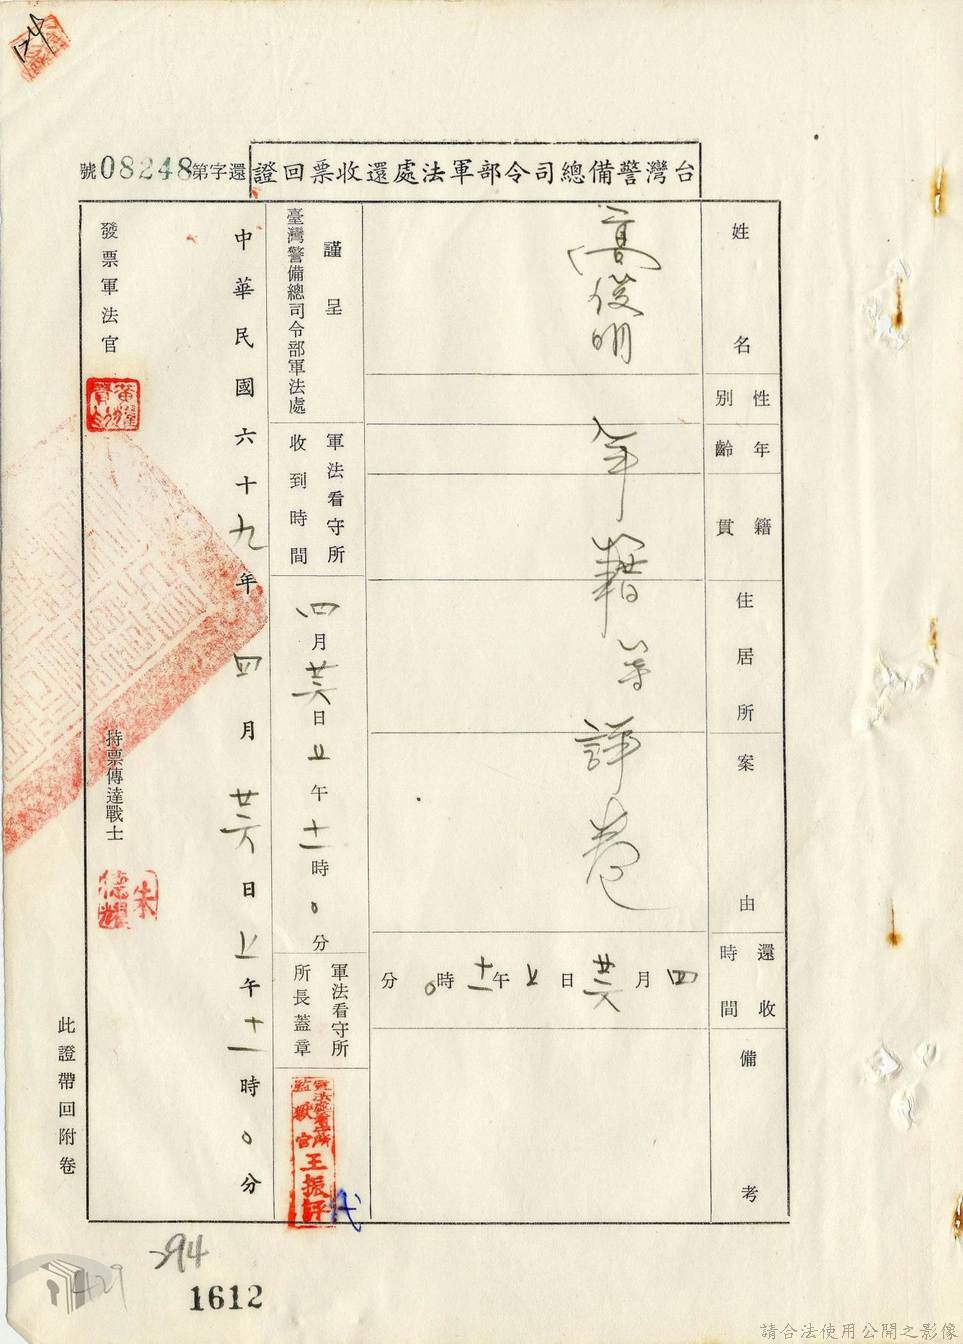 台灣警備總司令部軍法處還收票回證
還字第08248號
姓名
高俊明
性別
年齡
籍貫
住居所
案由
年籍等詳卷
還收時間
四月廿六日上午十一時0分
備考
謹呈
臺灣警備總司令部軍法處
軍法看守所收到時間
四月廿六日上午十一時0分
軍法看守所所長蓋章
軍法處看守所
監獄官王振評
代
中華民國六十九年四月廿六日上午十一時0分
發票軍法官
持票傳達戰士
朱德耀
此證帶回附卷
294
429
1612
請合法使用公開之影像